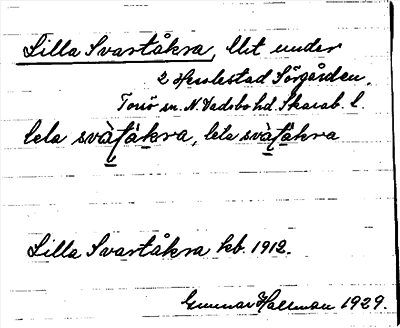 Lilla Svartåkra, lht under
2 Hesslestad Sörgården,
Torsö sn. N. Vadsbo hd. Skarab. l.
lela svàt́åkra, lela svàt́åkra
Lilla Svartåkra kb. 1912.
Gunnar Hallman 1929.